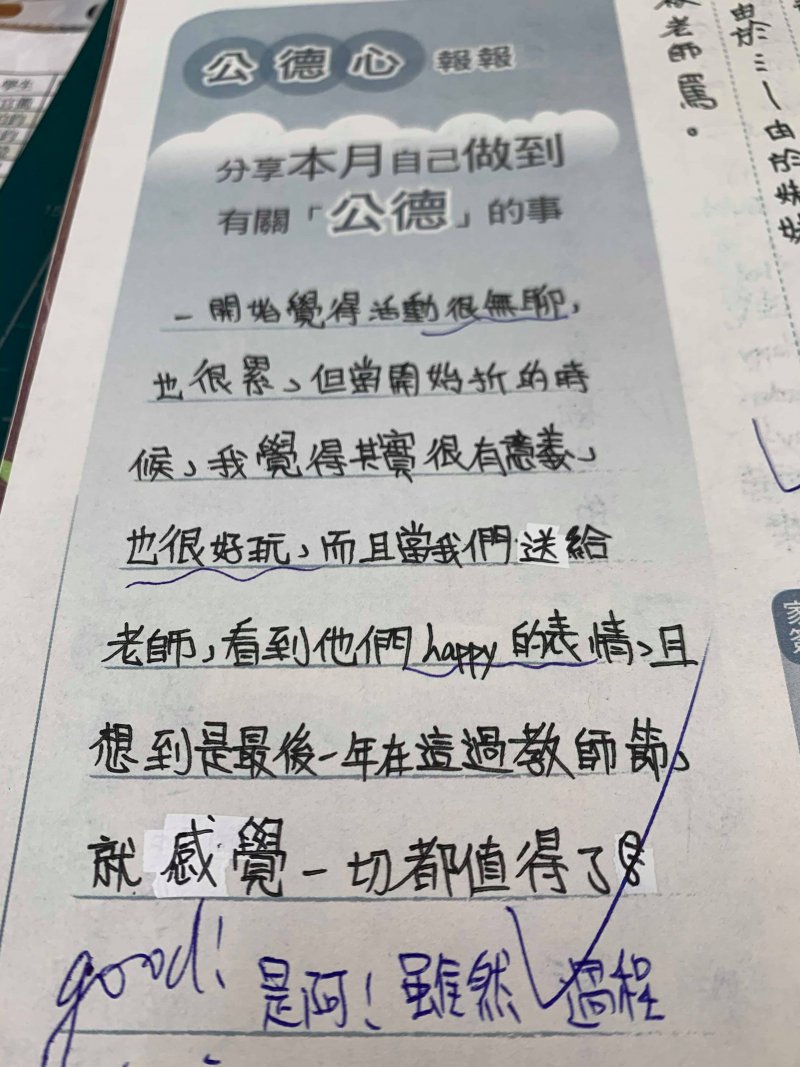 公德心 報報
分享本月自己做到
有關「公德」的事
一開始覺得活動很無聊,
也很累、但當開始折的時
候、我覺得其實很有意義、
也很好玩、而且當我們送給
老師、看到他們happy的表情、且
想到是最後一年在這過教師節、
就感覺一切都值得了!
good! 是阿!雖然過程
老師罵。
由於
由於妹妹
學生